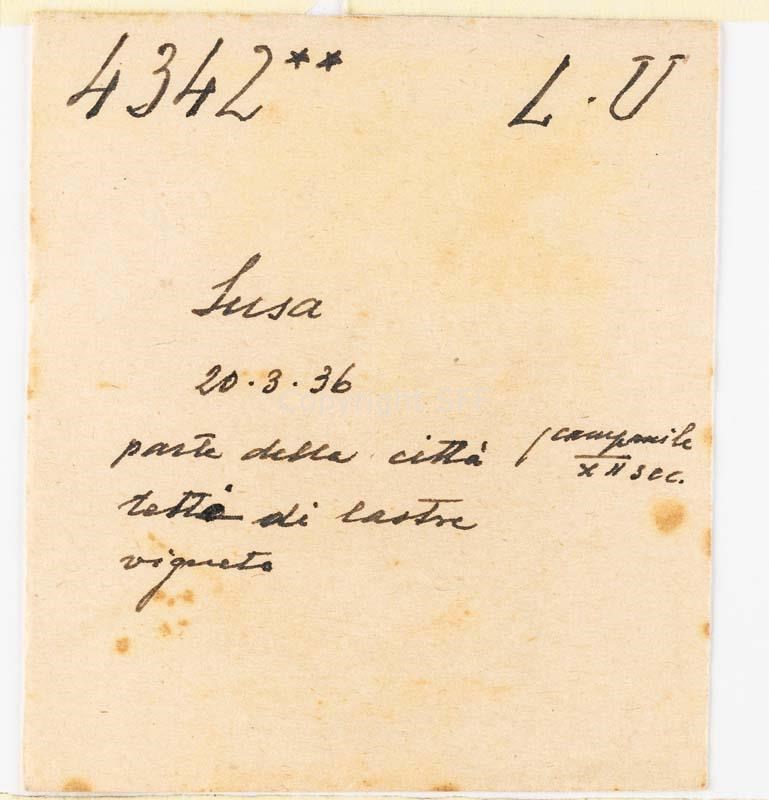 4342** L. U
Susa
20.3.36
parte della città / campanile
XII sec.
tetti di lastre
vigneto